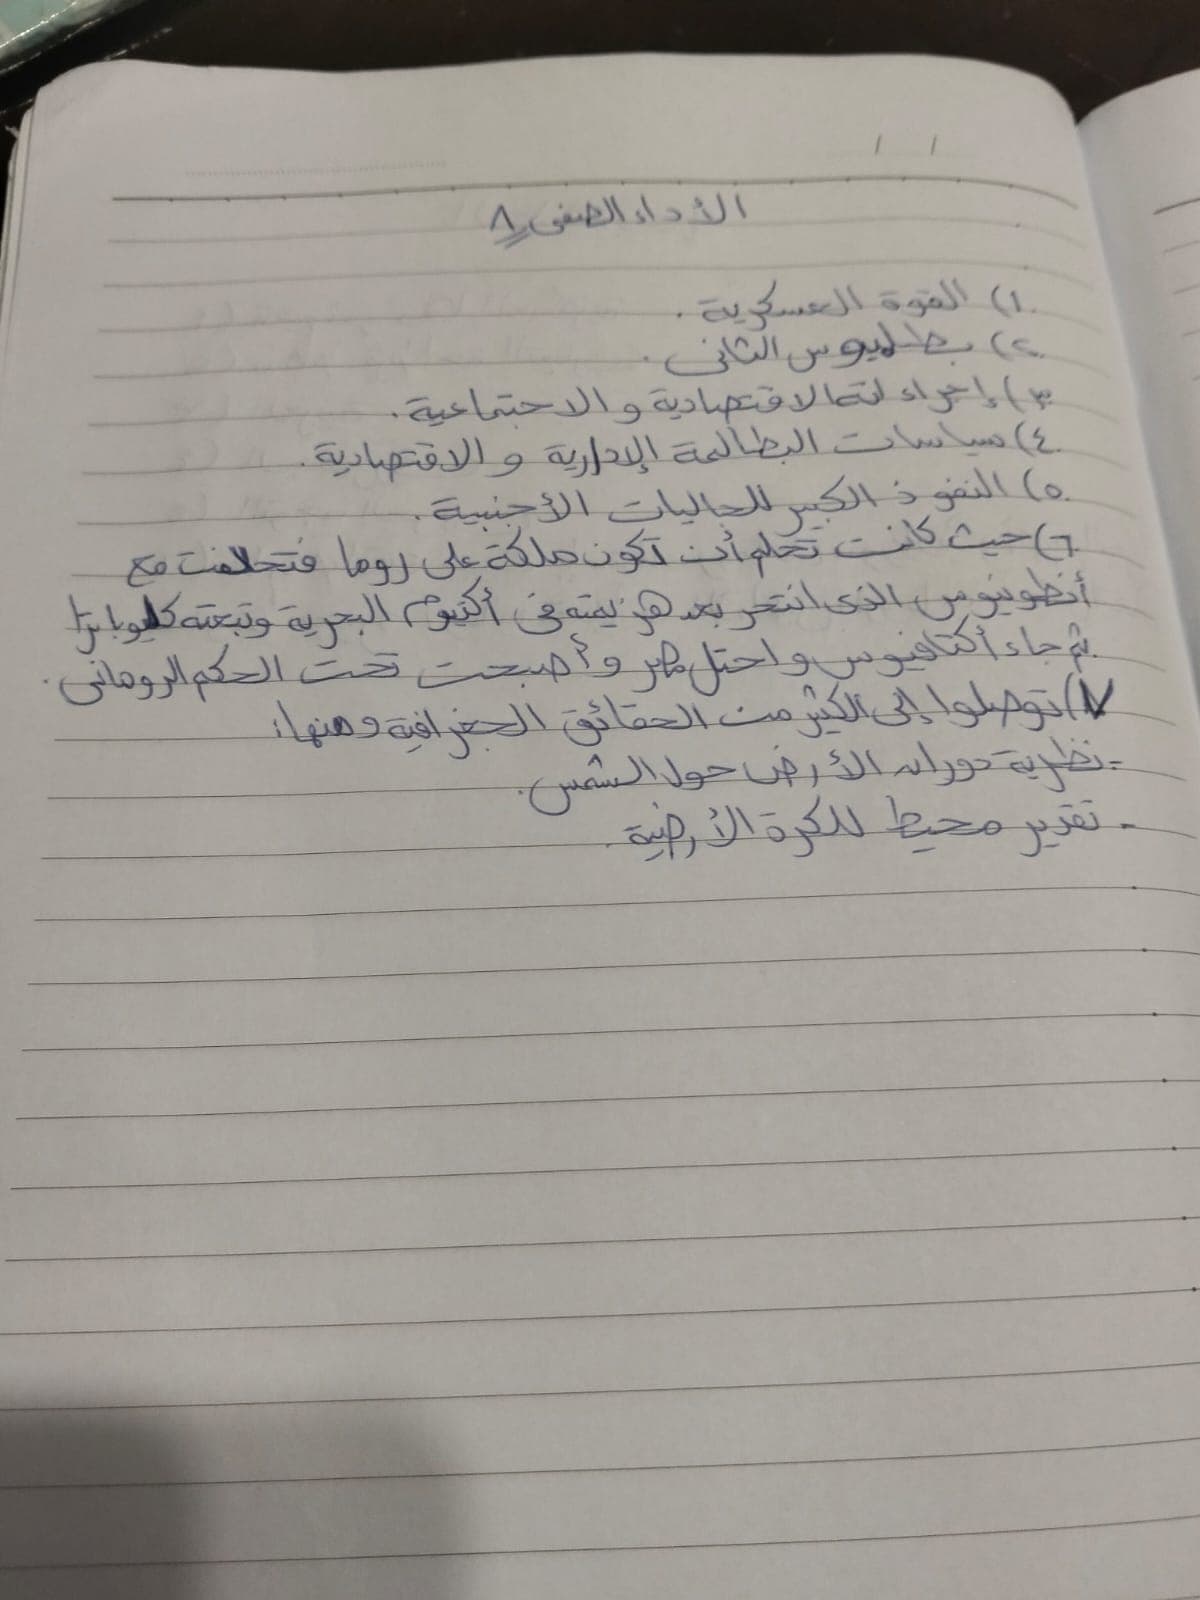 الأداء الصفى ٨
١) القوة العسكرية .
٢) بطليوس الثانى .
٣) إجراء اته الاقتصادية و الاجتماعية .
٤) سياسات البطالمة الإدارية و الاقتصادية .
٥) النفوذ الكبير للجاليات الأجنبية .
٦) حيث كانت تحلم أن تكون ملكة على روما فتحالفت مع
أنطونيوس الذى انتحر بعد هزيمته فى أكتيوم البحرية وتبعته كليوباترا
ثم جاء أكتافيوس و احتل مصر و أصبحت تحت الحكم الرومانى .
٧) توصلوا إلى الكثير من الحقائق الجغرافية ومنها :
- نظرية دوران الأرض حول الشمس .
- تقدير محيط للكرة الأرضية .